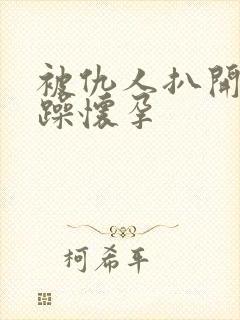 被仇人扒開
躁懷孕
柯希平